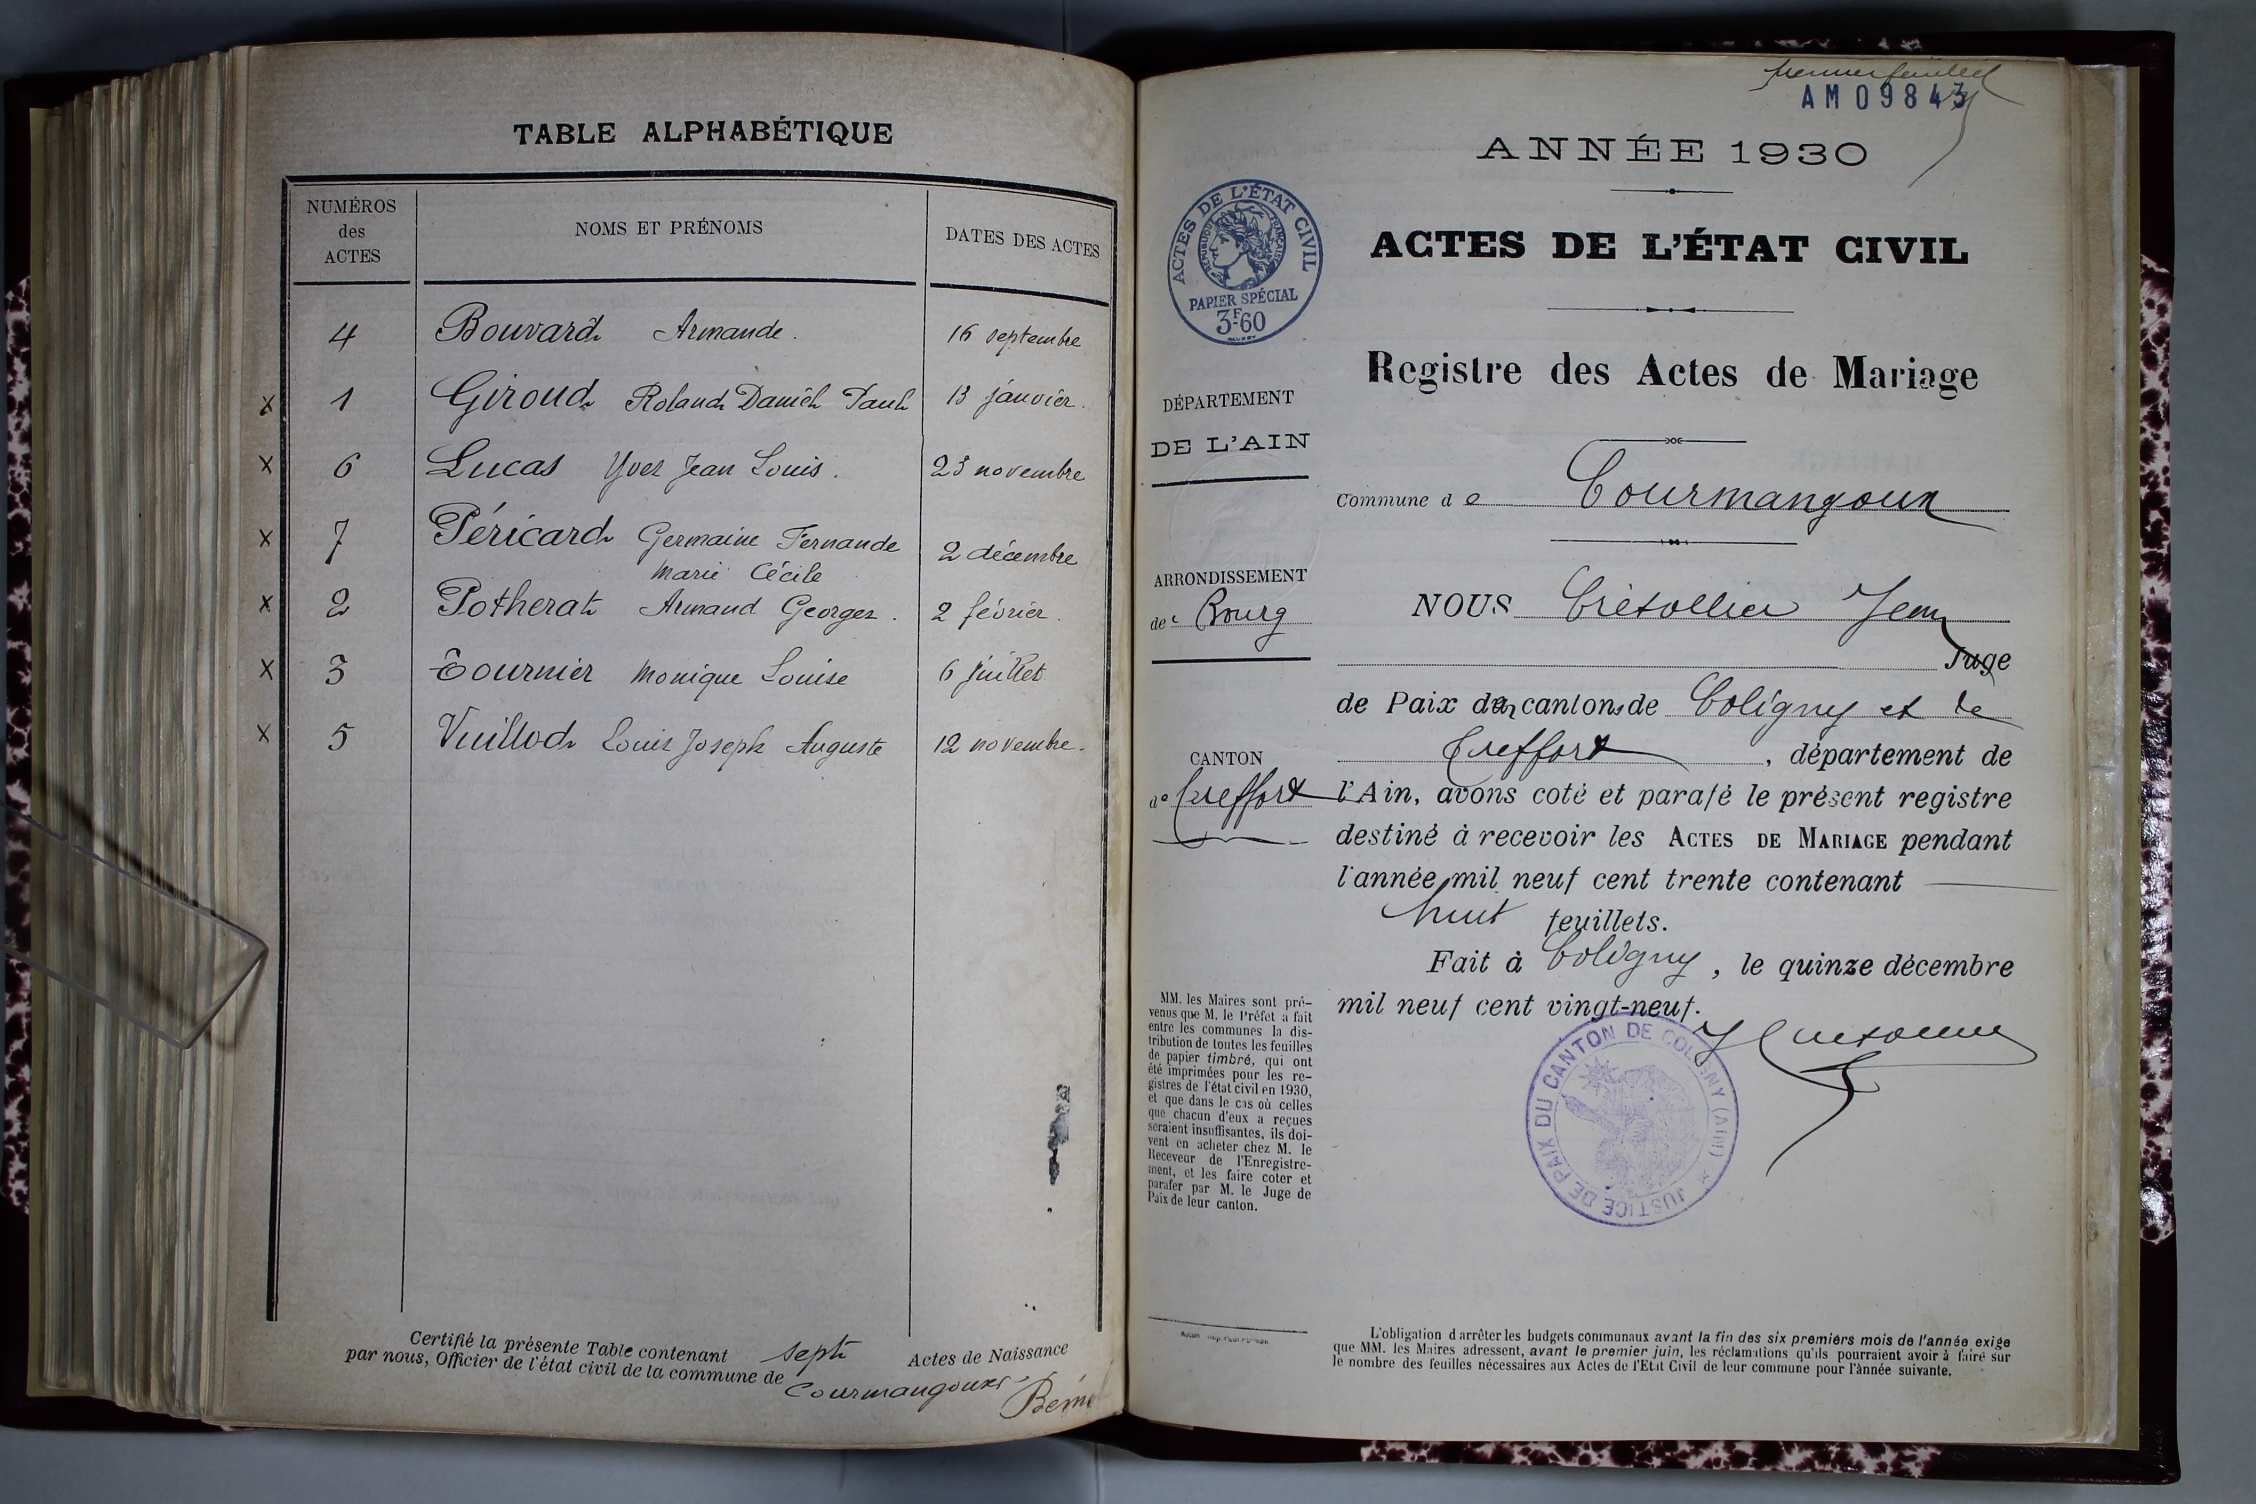 TABLE ALPHABÉTIQUE
NUMÉROS des ACTES
NOMS ET PRÉNOMS
DATES DES ACTES
4 Bouvard Armande. 16 septembre
x 1 Giroud Roland Daniel Paul 13 janvier.
x 6 Lucas Yves Jean Louis. 23 novembre
x 7 Péricard Germaine Fernande 2 décembre
Marie Cécile
x 2 Potherat Armand Georges. 2 février.
x 3 Tournier Monique Louise 6 juillet
x 5 Vuillod Louis Joseph Auguste 12 novembre.
Certifié la présente Table contenant sept Actes de Naissance
par nous, Officier de l'état civil de la commune de Courmangoux
AM 09843
ANNÉE 1930
ACTES DE L'ÉTAT CIVIL
Registre des Actes de Mariage
ACTES DE L'ÉTAT CIVIL
RÉPUBLIQUE FRANÇAISE
PAPIER SPÉCIAL
3F.60
DÉPARTEMENT
DE L'AIN
ARRONDISSEMENT
de Bourg
CANTON
de Treffort
MM. les Maires sont pré-
venus que M. le Préfet a fait
entre les communes la dis-
tribution de toutes les feuilles
de papier timbré, qui ont
été imprimées pour les re-
gistres de l'état civil en 1930,
et que dans le cas où celles
que chacun d'eux a reçues
seraient insuffisantes, ils doi-
vent en acheter chez M. le
Receveur de l'Enregistre-
ment, et les faire coter et
parafer par M. le Juge de
Paix de leur canton.
Commune de Courmangoux
NOUS Jean
Juge
de Paix des cantons de Coligny et de
Treffort, département de
l'Ain, avons coté et parafé le présent registre
destiné à recevoir les ACTES DE MARIAGE pendant
l'année mil neuf cent trente contenant
huit feuillets.
Fait à Coligny, le quinze décembre
mil neuf cent vingt-neuf.
JUSTICE DE PAIX DU CANTON DE COLIGNY (Ain)
L'obligation d'arrêter les budgets communaux avant la fin des six premiers mois de l'année exige
que MM. les Maires adressent, avant le premier juin, les réclamations qu'ils pourraient avoir à faire sur
le nombre des feuilles nécessaires aux Actes de l'Etat Civil de leur commune pour l'année suivante.